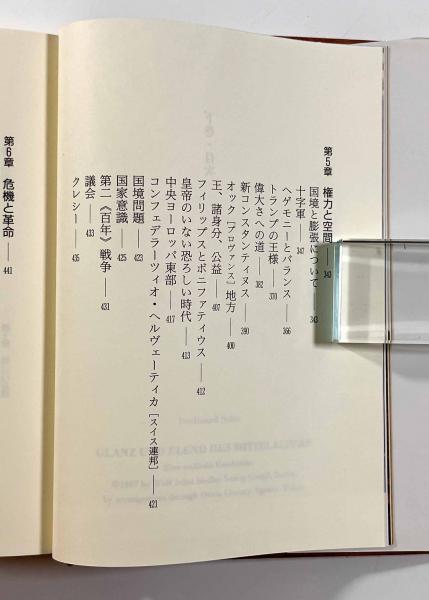 第5章 権力と空間 — 343
国境と膨張について — 343
十字軍 — 347
ヘゲモニーとバランス — 366
トランプの王様 — 370
偉大さへの道 — 382
新コンスタンティヌス — 390
オック[プロヴァンス]地方 — 400
王、諸身分、公益 — 407
フィリップスとボニファティウス — 412
皇帝のいない恐ろしい時代 — 413
中央ヨーロッパ東部 — 417
コンフェデラーツィオ・ヘルヴェーティカ[スイス連邦] — 421
国境問題 — 423
国家意識 — 425
第二《百年》戦争 — 431
議会 — 433
クレシー — 435
第6章 危機と革命 — 441